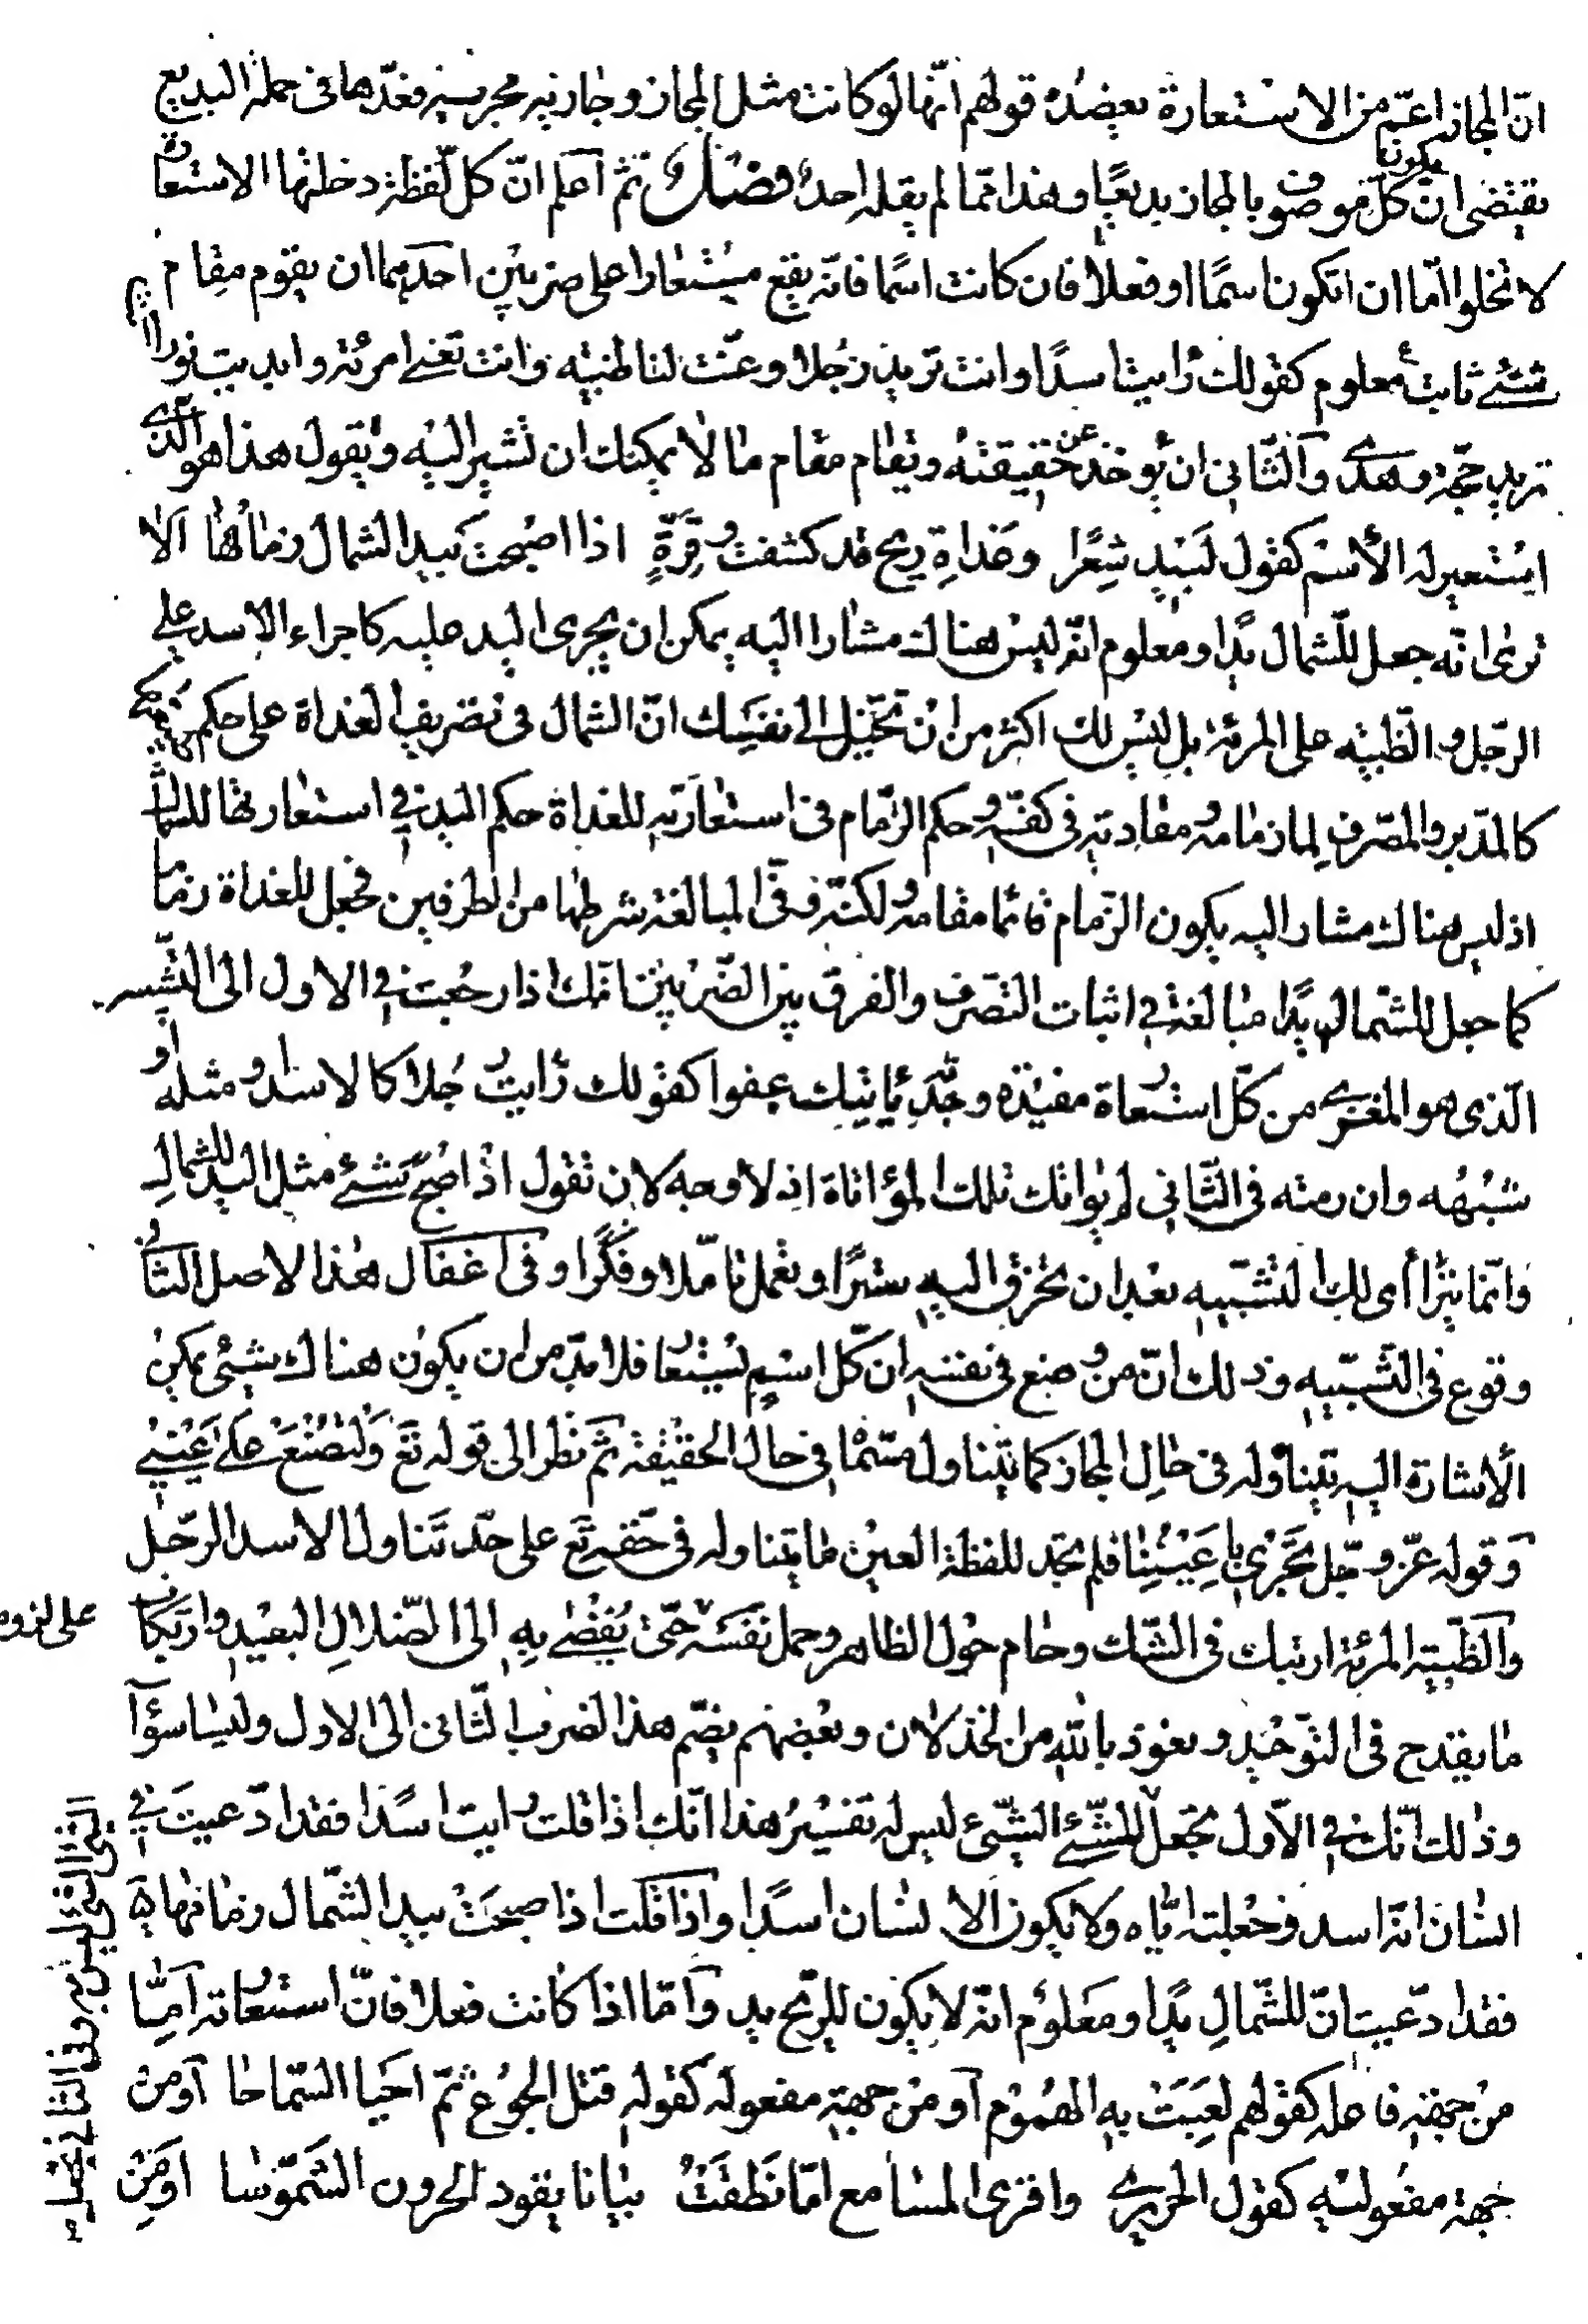 انّ المجاز اعمّ من الاستعارة يعضده قولهم انّها لو كانت مثل المجاز وجارية مجريه فعدّها فى جملة البديع
يقتضى انّ كلّ موصوف بالمجاز يكون بديعًا وهذا ممّا لم يقله احد فصل ثم اعلم انّ كل لفظة دخلتها الاستعارة
لا تخلوا امّا ان تكون اسمًا او فعلا فان كانت اسمًا فانّه يقع مستعارا على ضربين احدهما ان يقوم مقام
شئ ثابت معلوم كقولك رايت اسدًا وانت تريد رجلا وعنّت لنا ظبية وانت تعنى امرئة وابديت نورا
تريد حجّة وهدى والثّانى ان يوخذ عن حقيقته ويقام مقام ما لا يمكنك ان تشير اليه ويقول هذا هو الّذى
استعير له الأسم كقول لبيدٍ شعرًا وغداة ريح قد كشفت وقرّةٍ اذا اصبحت بيد الشمال زمامها الا
ترى انّه جعل للّشمال يدًا ومعلوم انّه ليس هناك مشارا اليه يمكن ان يجرى اليد عليه كاجراء الاسد على
الرّجل والظّبية على المرئة بل ليس لك اكثر من ان تخيّل الى نفسك انّ الشمال فى تصريف الغداة على حكم
كالمدّبر والمصّرف لما زمامه ومقادته فى كفّه وحكم الزّمام فى استعارته للغداة حكم اليد فى استعارتها للشمال
اذ ليس هناك مشار اليه يكون الزّمام قائما مقامه ولكنّه وفّى المبالغة شرطها من الطرفين فجعل للغداة زماما
كما جعل للشّمال يدًا مبالغة فى اثبات التصرف والفرق بين الضّربين انّك اذا رجعت فى الاول الى التشبيه
الّذى هو المغزى من كلّ استعارة مفيدة وجدّته ياتيك عفوا كقولك رايت رجلا كالاسد او مثله
شبهه وان رمته فى الثّانى لم يواتك تلك المؤاتاة اذ لا وجه لان تقول اذا اصبح شئ مثل اليد للشمال
وانّما يترا أى لك التشبيه بعد ان تخرق اليه سترًا وتعمل تامّلا وفكرًا وفى اغفال هذا الاصل الثّانى
وقوع فى التّشبيه وذلك انّ من وضع فى نفسه ان كلّ اسم يستعار فلا بدّ من ان يكون هناك شئ يمكن
الأشارة اليه يتناوله فى حال المجاز كما يتناول مسمّا فى حال الحقيقة ثم نظر الى قوله تع وَلتُصْنَعَ عَلى عَيْنى
وقوله عزّ وجلّ تَجْرى بِاَعْيُنِنا فلم يجد للفظة العين ما يتناوله فى حقه تع على حدّ تناول الاسد الرّجل
والظّبية المرئة ارتبك فى الشّك وحام حول الظاهر وحمل نفسَه حتى يفضى به الى الضّلال البعيد وارتكاب
ما يقدح فى التّوحيد ونعوذ بالله من الخذلان وبعضهم يضمّ هذا الضرب الثّانى الى الاول وليسا سوآ
وذلك انّك فى الاّول تجعل للشّئ الشّئ ليس له تفسيرُ هذا انّك اذا قلت رايت اسدًا فقد ادّعيت فى
انسان انّه اسد وجعلته ايّاه ولا يكون الا نسان اسدًا واذا قلت اذا صبحت بيد الشّمال زمامها
فقد ادّعيت انّ للشّمال يدًا ومعلوم انّه لا يكون للرّيح يد وامّا اذا كانت فعلا فانّ استعارته امّا
من جهة فاعله كقولهم لعبت به الهموم او من جهة مفعوله كقوله قتل الجوع ثمّ احيا السّماحا او من
جهة مفعوليه كقول الحريرى واقرى المسامع امّا نطقتُ بيانا يقود الحرون الشّموسا او من
على لزوم